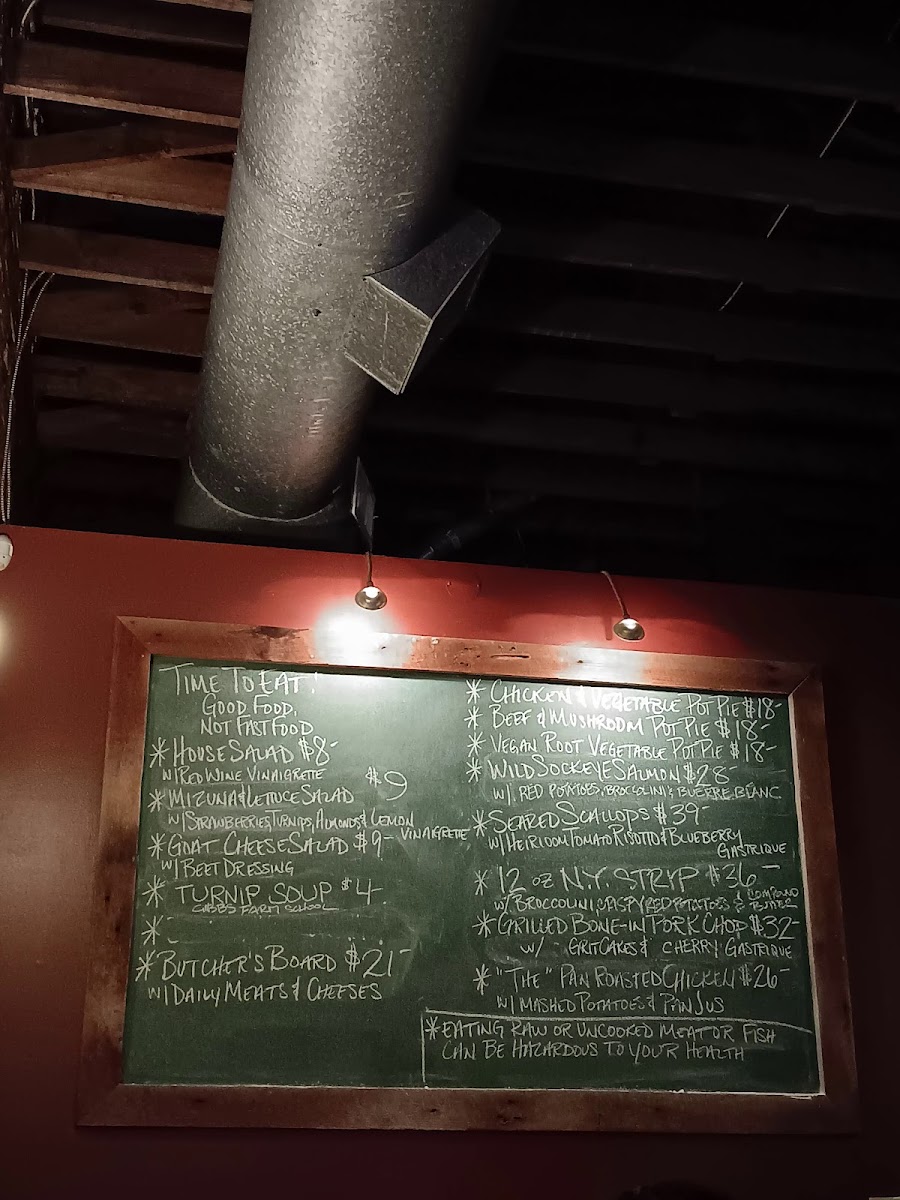 TIME TO EAT!
GOOD FOOD,
NOT FAST FOOD
* HOUSE SALAD $8-
W/ RED WINE VINAIGRETTE
* MIZUNA & LETTUCE SALAD $9
W/ STRAWBERRIES, TURNIPS, ALMONDS & LEMON VINAIGRETTE
* GOAT CHEESE SALAD $9-
W/ BEET DRESSING
* TURNIP SOUP $4-
GIBBS FARM SCHOOL
*
* BUTCHER'S BOARD $21-
W/ DAILY MEATS & CHEESES
* CHICKEN & VEGETABLE POT PIE $18-
* BEEF & MUSHROOM POT PIE $18-
* VEGAN ROOT VEGETABLE POT PIE $18-
* WILD SOCKEYE SALMON $28-
W/ RED POTATOES, BROCCOLINI & BUERRE BLANC
* SEARED SCALLOPS $39-
W/ HEIRLOOM TOMATO RISOTTO & BLUEBERRY
GASTRIQUE
* 12 OZ N.Y. STRYP $36-
W/ BROCCOLINI, CRISPY RED POTATOES & COMPOUND BUTTER
* GRILLED BONE-IN PORK CHOP $32-
W/ GRIT CAKES & CHERRY GASTRIQUE
* "THE" PAN ROASTED CHICKEN $26-
W/ MASHED POTATOES & PAN JUS
* EATING RAW OR UNCOOKED MEAT OR FISH
CAN BE HAZARDOUS TO YOUR HEALTH